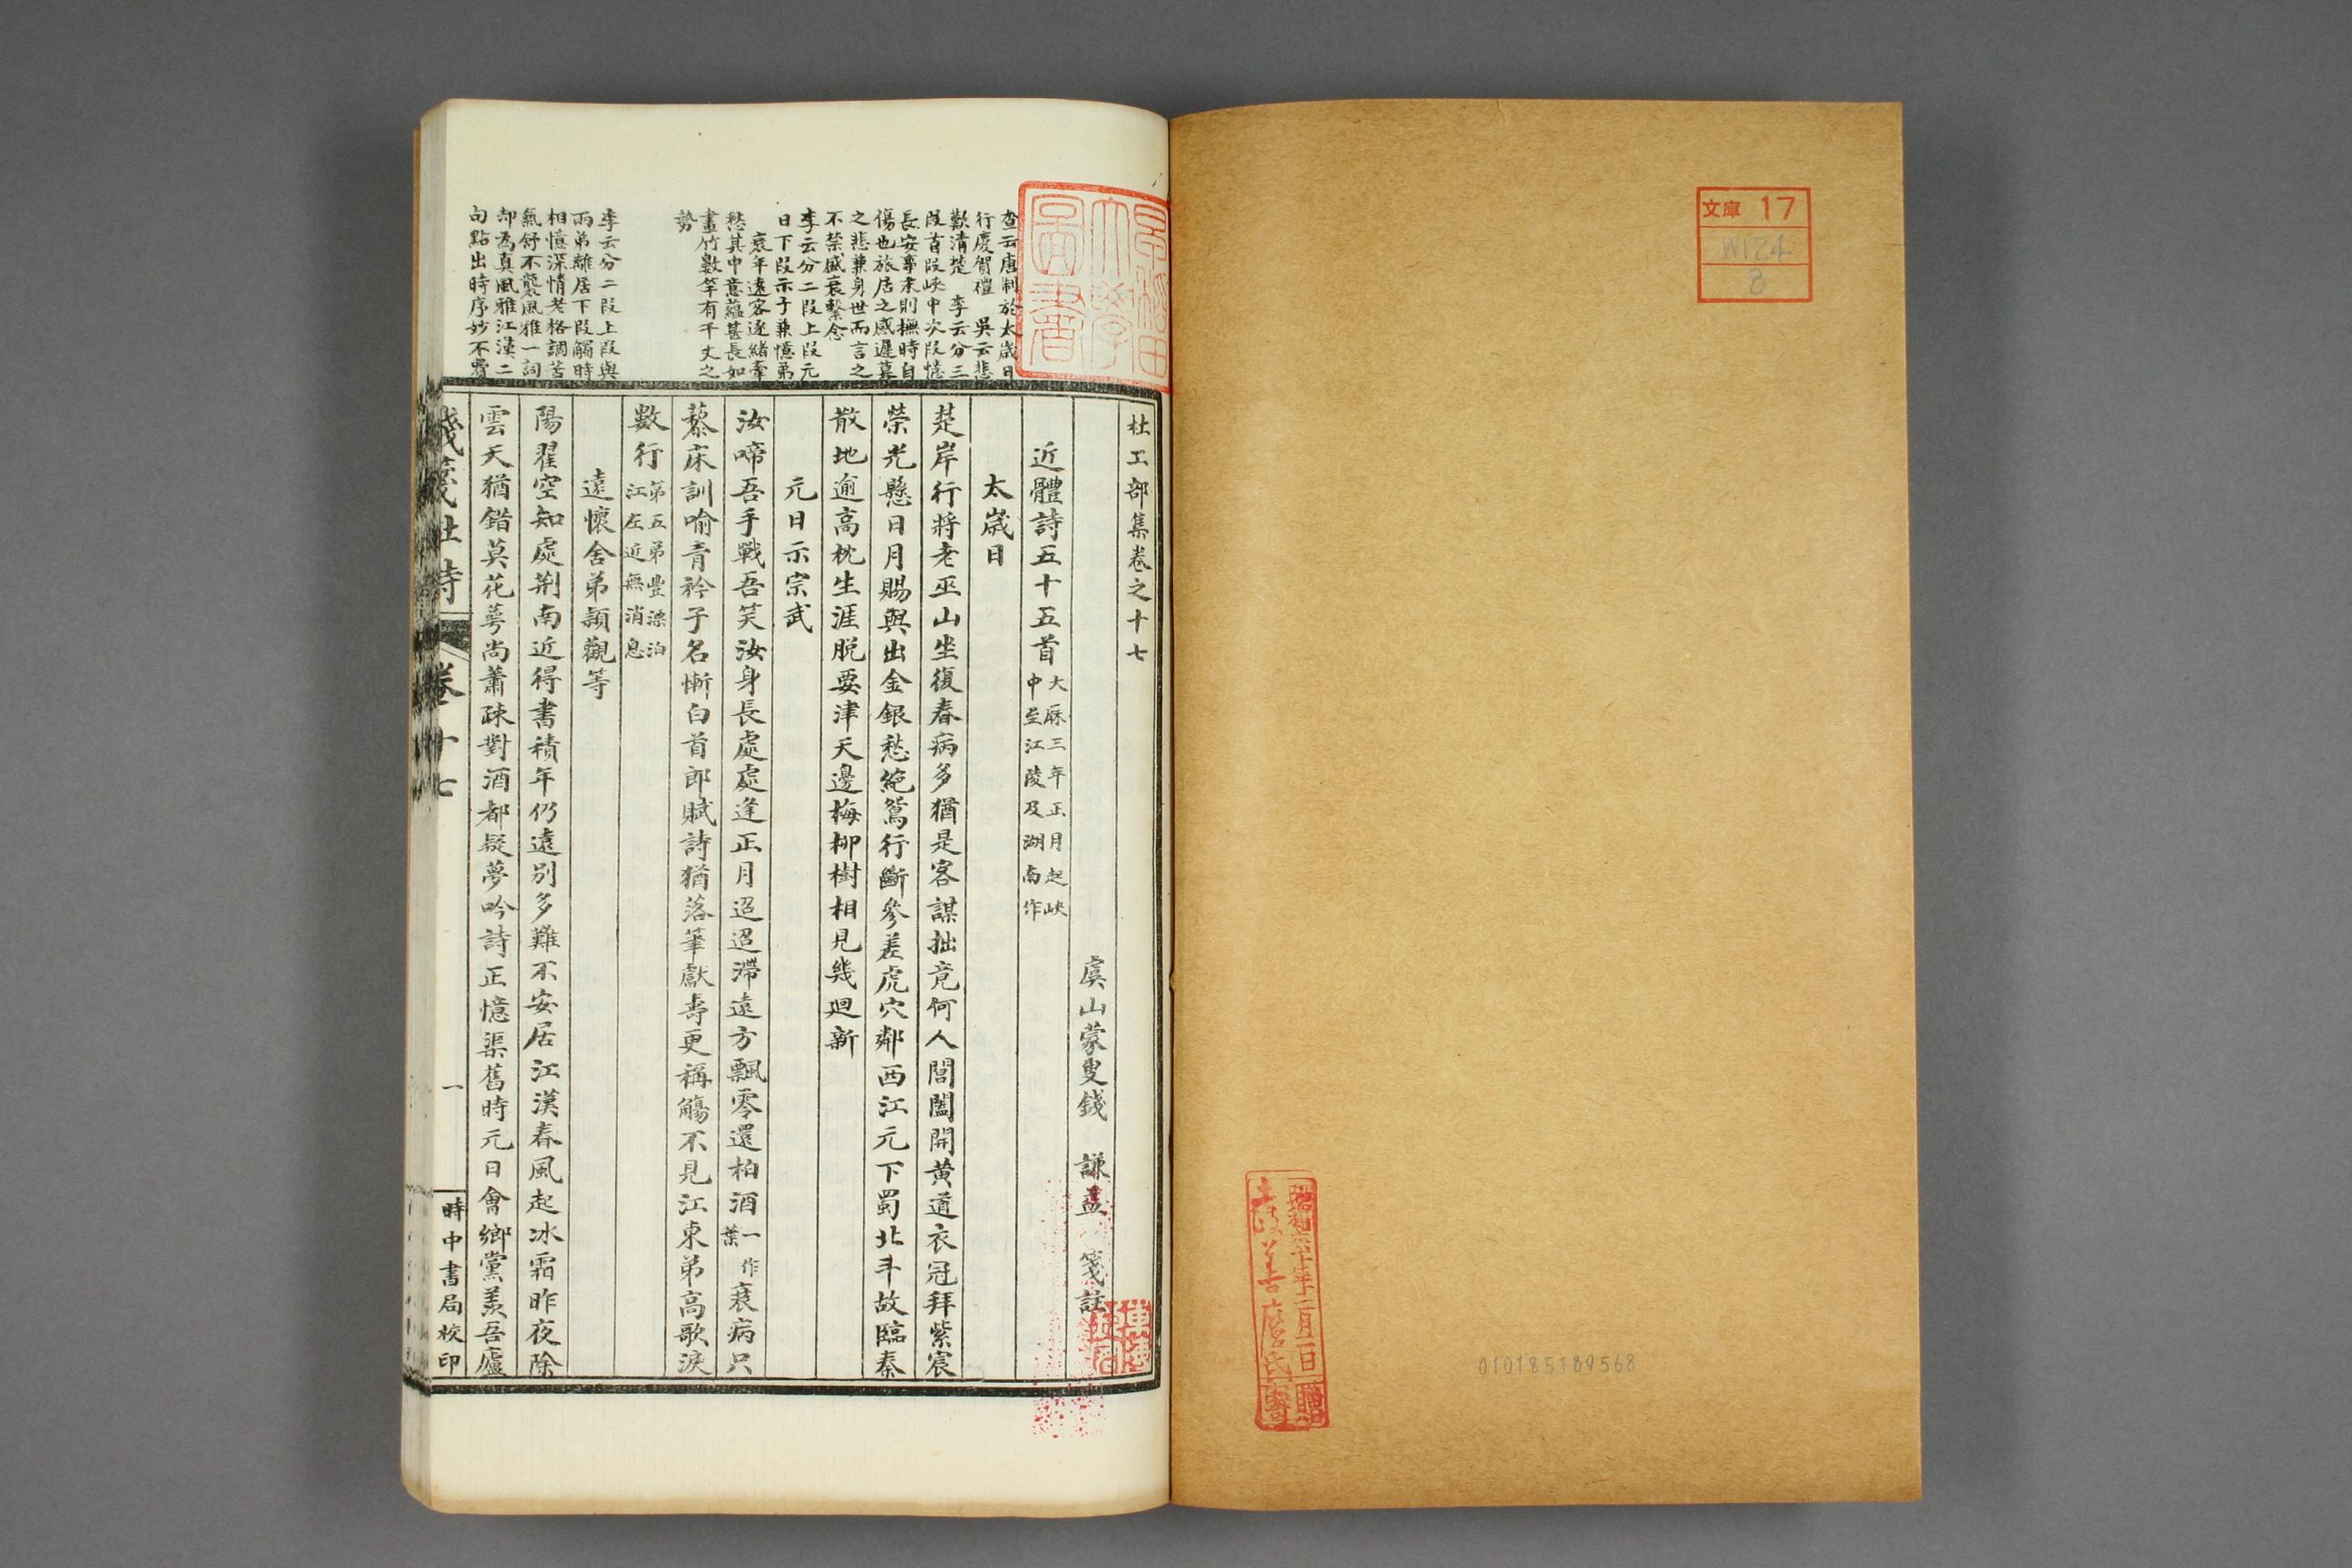 文庫 17
W124
8
010185189568
早稲田
大學
圖書
查云唐制於太歲日
行慶賀禮 吳云悲
歎清楚 李云分三
段首段峽中次段憶
長安事末則撫時自
傷也旅居之感遲暮
之悲兼身世而言之
不禁感哀繫念
李云分二段上段元
日下段示子兼憶弟
衰年遠客逐緒牽
愁其中意蘊甚長如
畫竹數竿有千丈之
勢
李云分二段上段與
兩弟離居下段觸時
相憶深情老格調苦
氣舒不襲風雅一詞
却為真風雅江漢二
句點出時序妙不費
杜工部集卷之十七
虞山蒙叟錢 謙益 箋註
近體詩五十五首 大厤三年正月起峽
中至江陵及湖南作
太歲日
楚岸行將老巫山坐復春病多猶是客謀拙竟何人閶闔開黄道衣冠拜紫宸
榮光懸日月賜與出金銀愁絶鴛行斷參差虎穴鄰西江元下蜀北斗故臨秦
散地逾高枕生涯脱要津天邊梅柳樹相見幾廻新
元日示宗武
汝啼吾手戰吾笑汝身長處處逢正月迢迢滯遠方飄零還柏酒一作葉衰病只
藜床訓喻青衿子名慚白首郎賦詩猶落筆獻壽更稱觴不見江東弟高歌淚
數行第五弟豐漂泊
江左近無消息
遠懷舍弟頴觀等
陽翟空知處荆南近得書積年仍遠别多難不安居江漢春風起冰霜昨夜除
雲天猶錯莫花萼尚蕭疎對酒都疑夢吟詩正憶渠舊時元日會鄉黨羨吾廬
錢箋杜詩 卷十七 一 時中書局校印